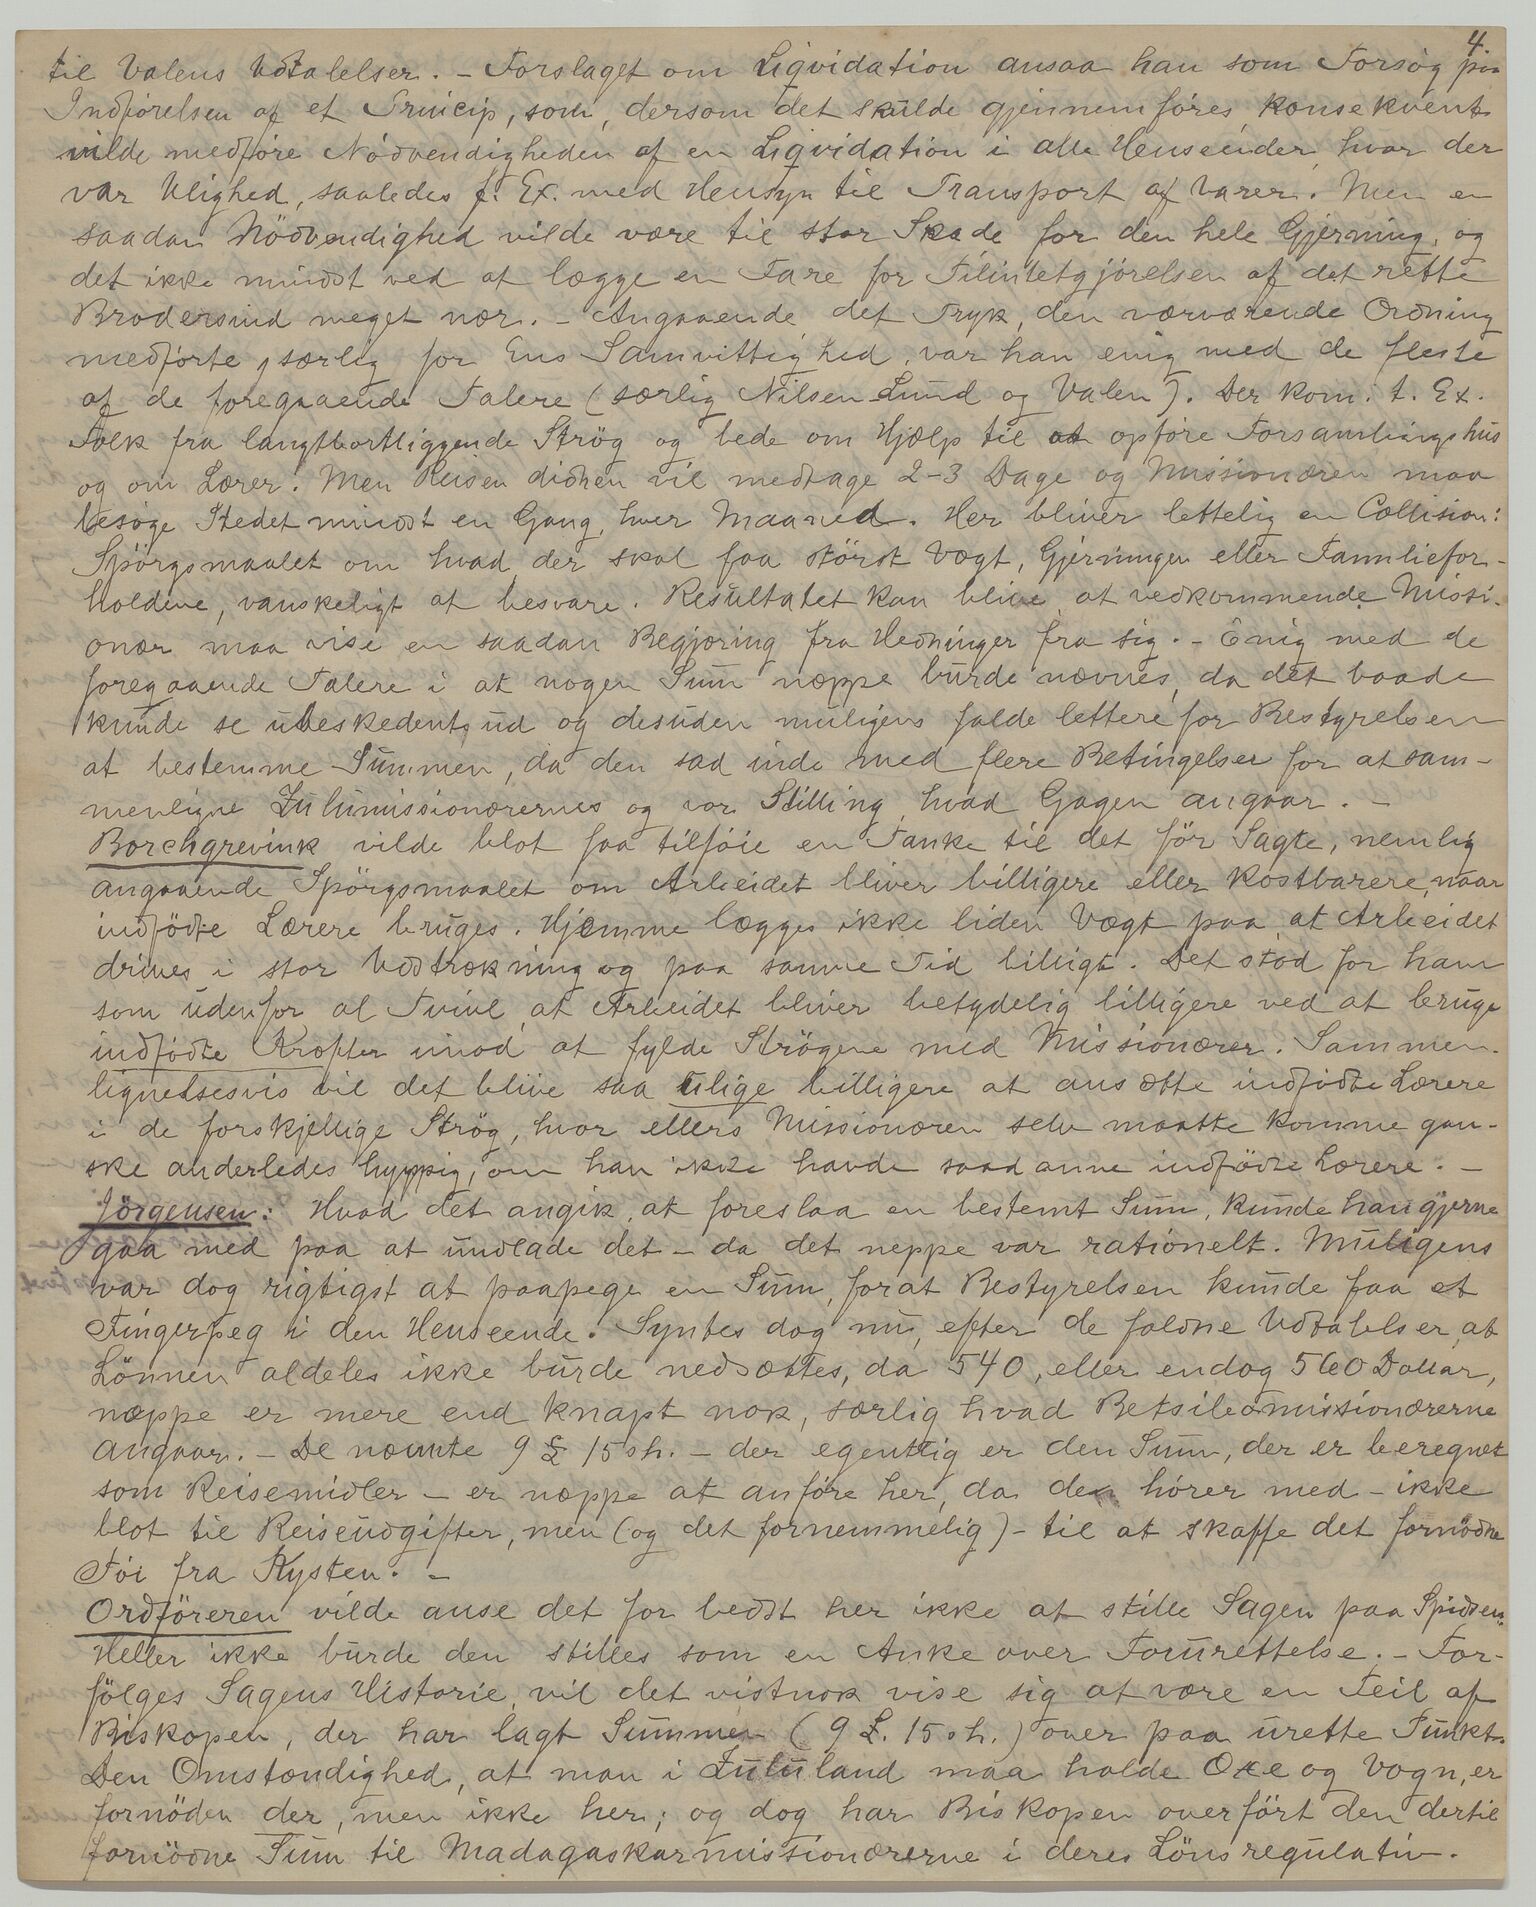 4.
til Valens Udtalelser. – Forslaget om Liqvidation ansaa han som Forsøg paa
Indførelsen af et Princip, som, dersom det skulde gjennemføres konsekvent
vilde medføre Nödvendigheden af en Liqvidation i alle Henseender, hvor der
var Ulighed, saaledes f. Ex. med Hensyn til Transport af Varer. Men en
saadan Nödvendighed vilde være til stor Skade for den hele Gjerning, og
det ikke mindst ved at lægge en Fare for Tilintetgjörelsen af det rette
Brodersind meget nær. – Angaaende det Tryk, den nærværende Ordning
medførte, særlig for Ens Samvittighed, var han enig med de fleste
af de foregaaende Talere (særlig Nilsen-Lund og Valen). Der kom: t. Ex.
Folk fra langtbortliggende Strög og bede om Hjælp til at opføre Forsamlingshus
og om Lærer. Men Reisen didhen vil medtage 2-3 Dage og Missionæren maa
besøge Stedet mindst en Gang hver Maaned. Her bliver lettelig en Collision:
Spörgsmaalet om hvad der skal faa störst Vægt, Gjerningen eller Familiefor-
holdene, vanskeligt at besvare. Resultatet kan blive, at vedkommende Missi-
onær maa vise en saadan Begjæring fra Hedninger fra sig. – Enig med de
foregaaende Talere i at nogen Sum næppe burde nævnes, da det baade
kunde se ubeskedent ud og desuden muligens falde lettere for Bestyrelsen
at bestemme Summen, da den sad inde med flere Betingelser for at sam-
menligne Zulumissionærernes og vor Stilling, hvad Gagen angaar. –
Borchgrevink vilde blot faa tilføie en Tanke til det för Sagte, nemlig
angaaende Spörgsmaalet om Arbeidet bliver billigere eller kostbarere, naar
indfödte Lærere bruges. Hjemme lægges ikke liden Vægt paa at Arbeidet
drives i stor Udtrækning og paa samme Tid billigt. Det stod for ham
som udenfor al Tvivl, at Arbeidet bliver betydelig billigere ved at bruge
indfödte Kræfter imod at fylde Strögene med Missionærer. Sammen-
lignelsesvis vil det blive saa ulige billigere at ansætte indfödte Lærere
i de forskjellige Strög, hvor ellers Missionæren selv maatte komme gan-
ske anderledes hyppig, om han ikke havde saadanne indfödte Lærere. –
Jörgensen: Hvad det angik, at foreslaa en bestemt Sum, kunde han gjerne
gaa med paa at undlade det – da det neppe var rationelt. Muligens
var dog rigtigst at paapege en Sum, forat Bestyrelsen kunde faa et
Fingerpeg i den Henseende. Syntes dog nu, efter de faldne Udtalelser, at
Lönnen aldeles ikke burde nedsættes, da 540, eller endog 560 Dollar,
næppe er mere end knapt nok, særlig hvad Betsileomissionærerne
angaar. – De nævnte 9 £ 15 sh. – der egentlig er den Sum, der er beregnet
som Reisemidler – er næppe at anføre her, da den hører med – ikke
blot til Reiseudgifter, men (og det fornemmelig) – til at skaffe det fornödne
Töi fra Kysten. –
Ordföreren vilde anse det for bedst her ikke at stille Sagen paa Spidsen.
Heller ikke burde den stilles som en Anke over Forurettelse. – For-
fölges Sagens Historie, vil det vistnok vise sig at være en Feil af
Biskopen, der har lagt Summen (9 £. 15 sh.) over paa urette Punkt.
Den Omstændighed, at man i Zululand maa holde Oxe og Vogn, er
fornöden der, men ikke her; og dog har Biskopen overfört den dertil
fornödne Sum til Madagaskarmissionærerne i deres Lönsregulativ.